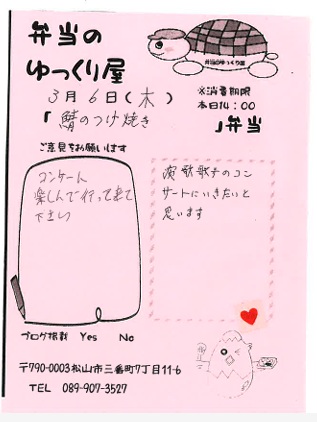 弁当の
ゆっくり屋
弁当のゆっくり屋
3月6日(木)
※消費期限
本日14:00
「鯖のつけ焼き
」弁当
ご意見をお願いします
コンサート
楽しんで行って来て
下さい
演歌歌手のコン
サートにいきたいと
思います
ブログ掲載 Yes No
〒790-0003松山市三番町7丁目11-6
TEL 089-907-3527